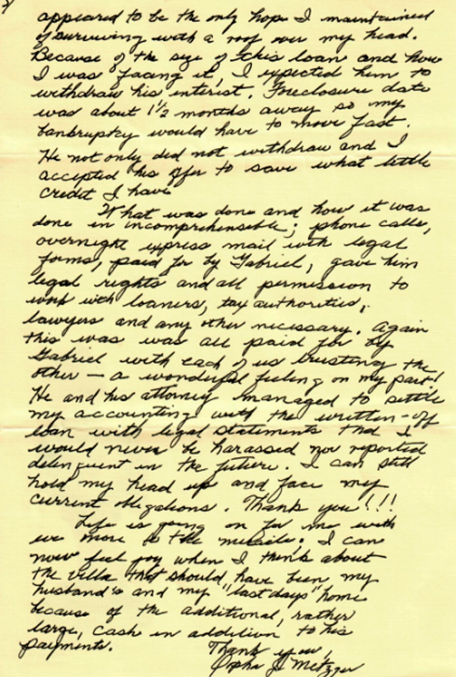 appeared to be the only hope I maintained
of surviving with a roof over my head.
Because of the size of this loan and how
I was facing it, I expected him to
withdraw his interest. Foreclosure date
was about 1½ months away so my
bankruptky would have to move fast.
He not only did not withdraw and I
accepted his offer to save what little
credit I have
What was done and how it was
done in incomprehensible; phone calls,
overnight express mail with legal
forms, paid for by Gabriel, gave him
legal rights and all permission to
work with loaners, tax authorities,
lawyers and any other necessary. Again
this was was all paid for by
Gabriel with each of us trusting the
other — a wonderful feeling on my part!
He and his attorney managed to settle
my accounting with the written-off
loan with legal statements that I
would never be harassed nor reported
delinquent in the future. I can still
hold my head up and face my
current obligations. Thank you!!!
Life is going on for me with
more to the miracle; I can
now feel joy when I think about
the villa that should have been my
husband's and my "last days" home
because of the additional, rather
large, cash in addition to his
payments.
Thank you,
Metzger